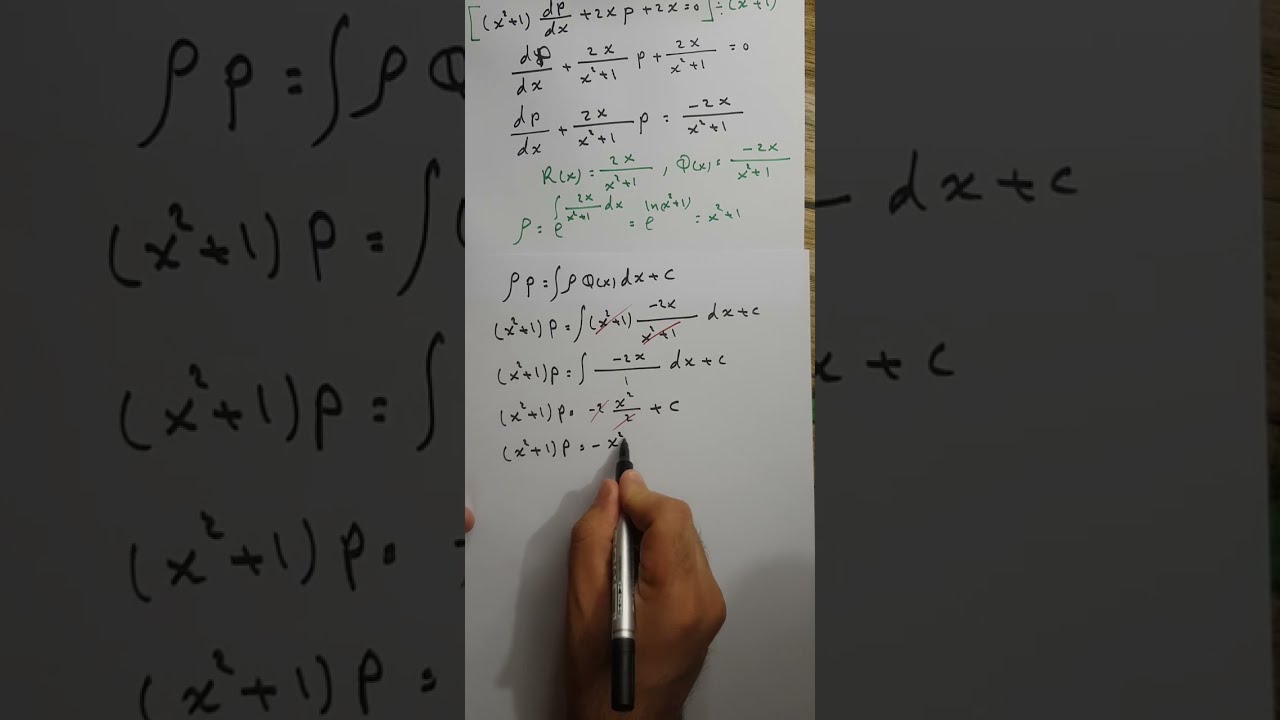 [(x²+1) dp/dx + 2x p + 2x = 0] ÷ (x²+1)
dp/dx + 2x/(x²+1) p + 2x/(x²+1) = 0
dp/dx + 2x/(x²+1) p = -2x/(x²+1)
R(x) = 2x/(x²+1) , Q(x) = -2x/(x²+1)
ρ = e^(∫ 2x/(x²+1) dx) = e^(ln(x²+1)) = x²+1
ρ p = ∫ ρ Q(x) dx + c
(x²+1) p = ∫ (x²+1) -2x/(x²+1) dx + c
(x²+1) p = ∫ -2x/1 dx + c
(x²+1) p = -2 x²/2 + c
(x²+1) p = - x²